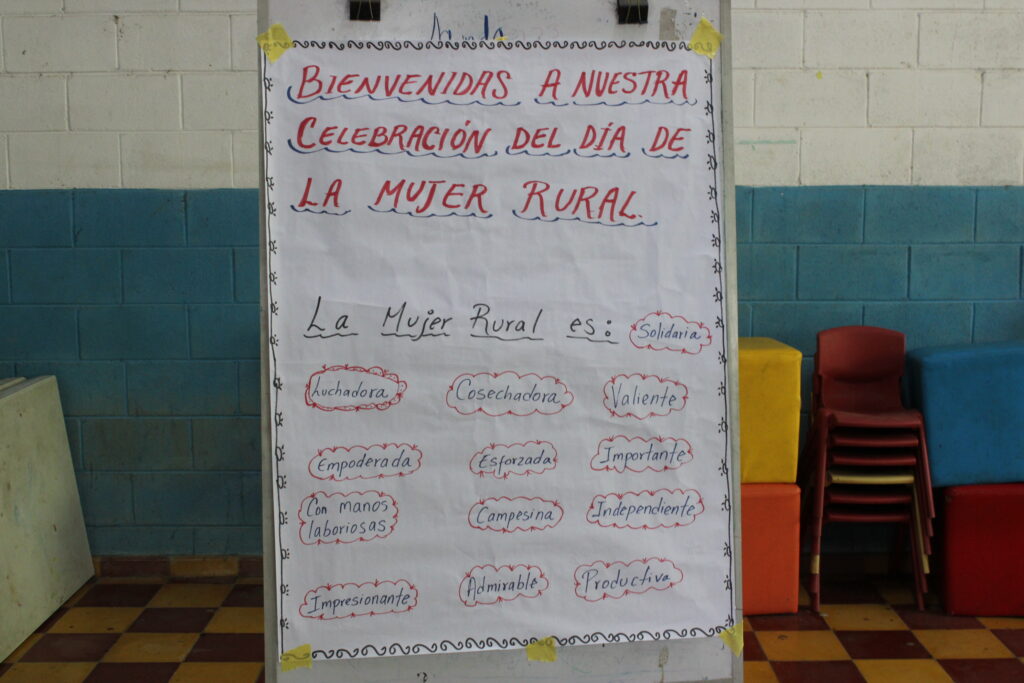 BIENVENIDAS A NUESTRA
CELEBRACIÓN DEL DÍA DE
LA MUJER RURAL.
La Mujer Rural es: Solidaria
Luchadora Cosechadora Valiente
Empoderada Esforzada Importante
Con manos
laboriosas
Campesina Independiente
Impresionante Admirable Productiva